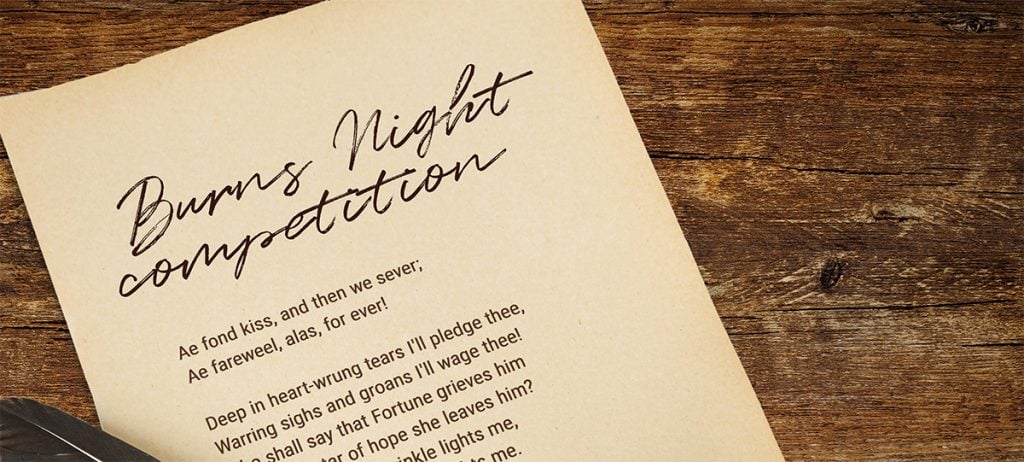 Burns Night
competition
Ae fond kiss, and then we sever;
Ae fareweel, alas, for ever!
Deep in heart-wrung tears I'll pledge thee,
Warring sighs and groans I'll wage thee!
shall say that Fortune grieves him
of hope she leaves him?
lights me,
me.